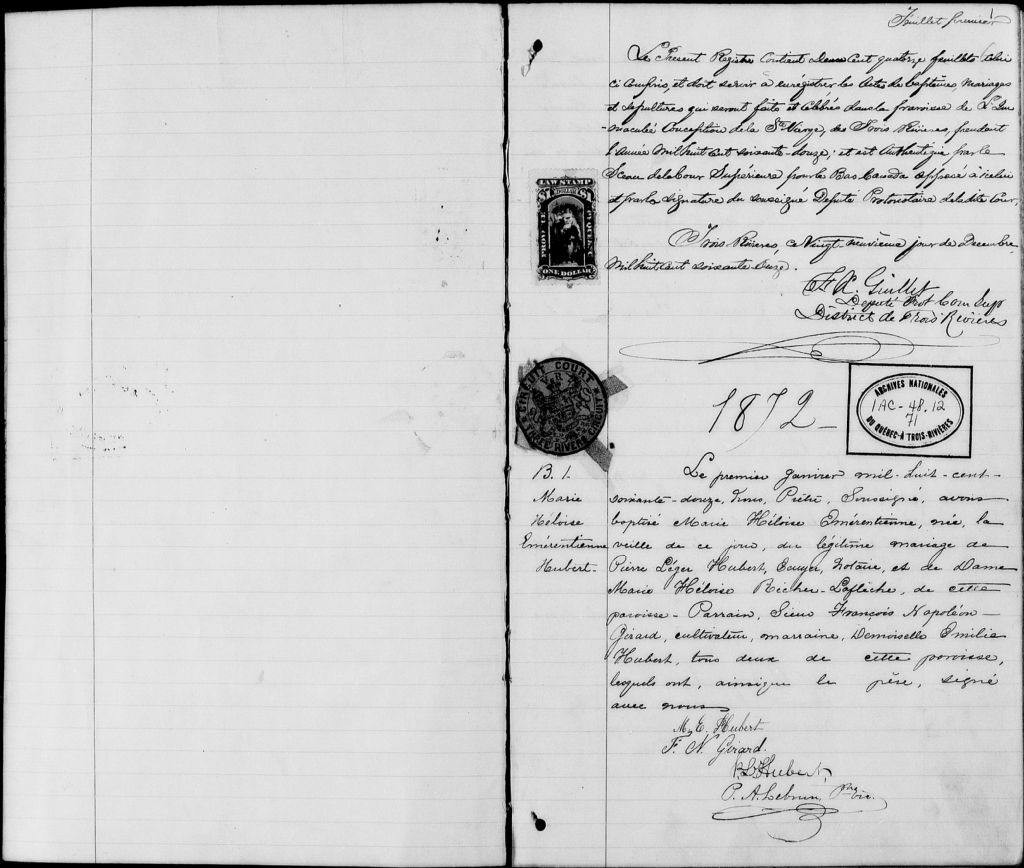 Feuillet premier
Le Présent Registre Contient Deux Cent quatorze feuillets Celui
ci compris, et doit servir à enrégistrer les Actes de baptêmes, mariages
et sépultures qui seront faits et célébrés dans la paroisse de L'Im
-maculée Conception de la Ste Vierge, des Trois Rivières, pendant
l'année Mil huit Cent soixante-douze; et est Authentiqué par le
Sceau de la Cour Supérieure pour le Bas Canada apposé à icelui
et par la signature du soussigné Député Protonotaire de la dite Cour.
Trois Rivières, ce Vingt-neuvième jour de Decembre
Mil huit cent soixante Onze.
Député Prot Cour Sup
District de Trois Rivières
LAW STAMP
$1 $1
PROVINCE QUEBEC
ONE DOLLAR
CIRCUIT COURT
V R
TROIS RIVIERES CIRCUIT
1872 -
ARCHIVES NATIONALES
1AC-48.12
71
DU QUÉBEC-À TROIS-RIVIÈRES
B. 1.
Marie
Héloise
Emérentienne
Hubert-
Le premier janvier mil-huit-cent-
soixante-douze, Nous, Prêtre, Soussigné, avons
baptisé Marie Héloise Emérentienne, née, la
veille de ce jour, du légitime mariage de
Pierre Léger Hubert, Ecuyer, Notaire, et de Dame
Marie Héloise Richer-Laflèche, de cette
paroisse - Parrain, Sieur François Napoléon
Girard, cultivateur, marraine, Demoiselle Emilie
Hubert, tous deux de cette paroisse,
lesquels ont, ainsique le père, signé
avec nous
M. E. Hubert
F. N. Girard.
P. L. Hubert,
P. A. Lebrun, Ptre Vic.